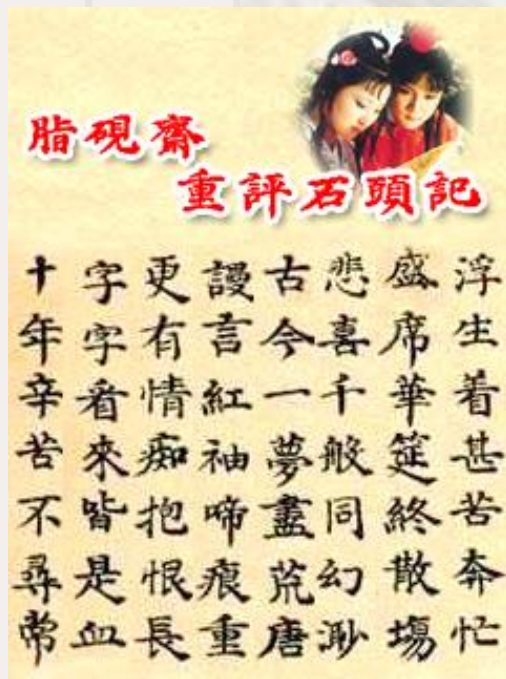 脂硯齋
重評石頭記
浮生着甚苦奔忙
盛席華筵終散場
悲喜千般同幻渺
古今一夢盡荒唐
謾言紅袖啼痕重
更有情痴抱恨長
字字看來皆是血
十年辛苦不尋常